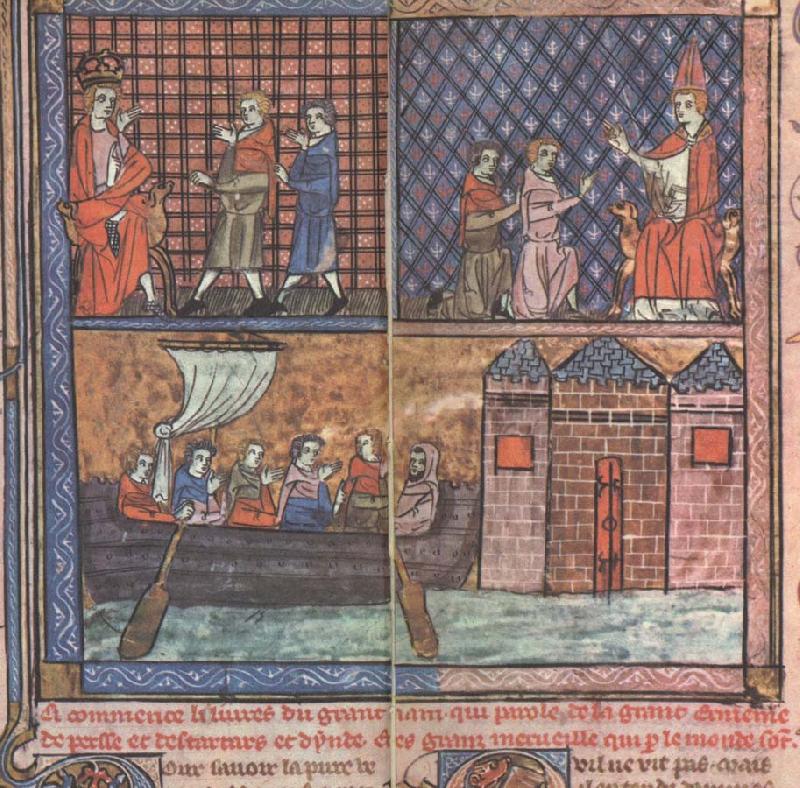 Ci commence li liures du grant caam. qui parole de la grant ermenie
de persse et des tartars et dynde. & des granz merueille qui p le monde sot.
our sauoir la pure ve
vil ne vit pas. mais